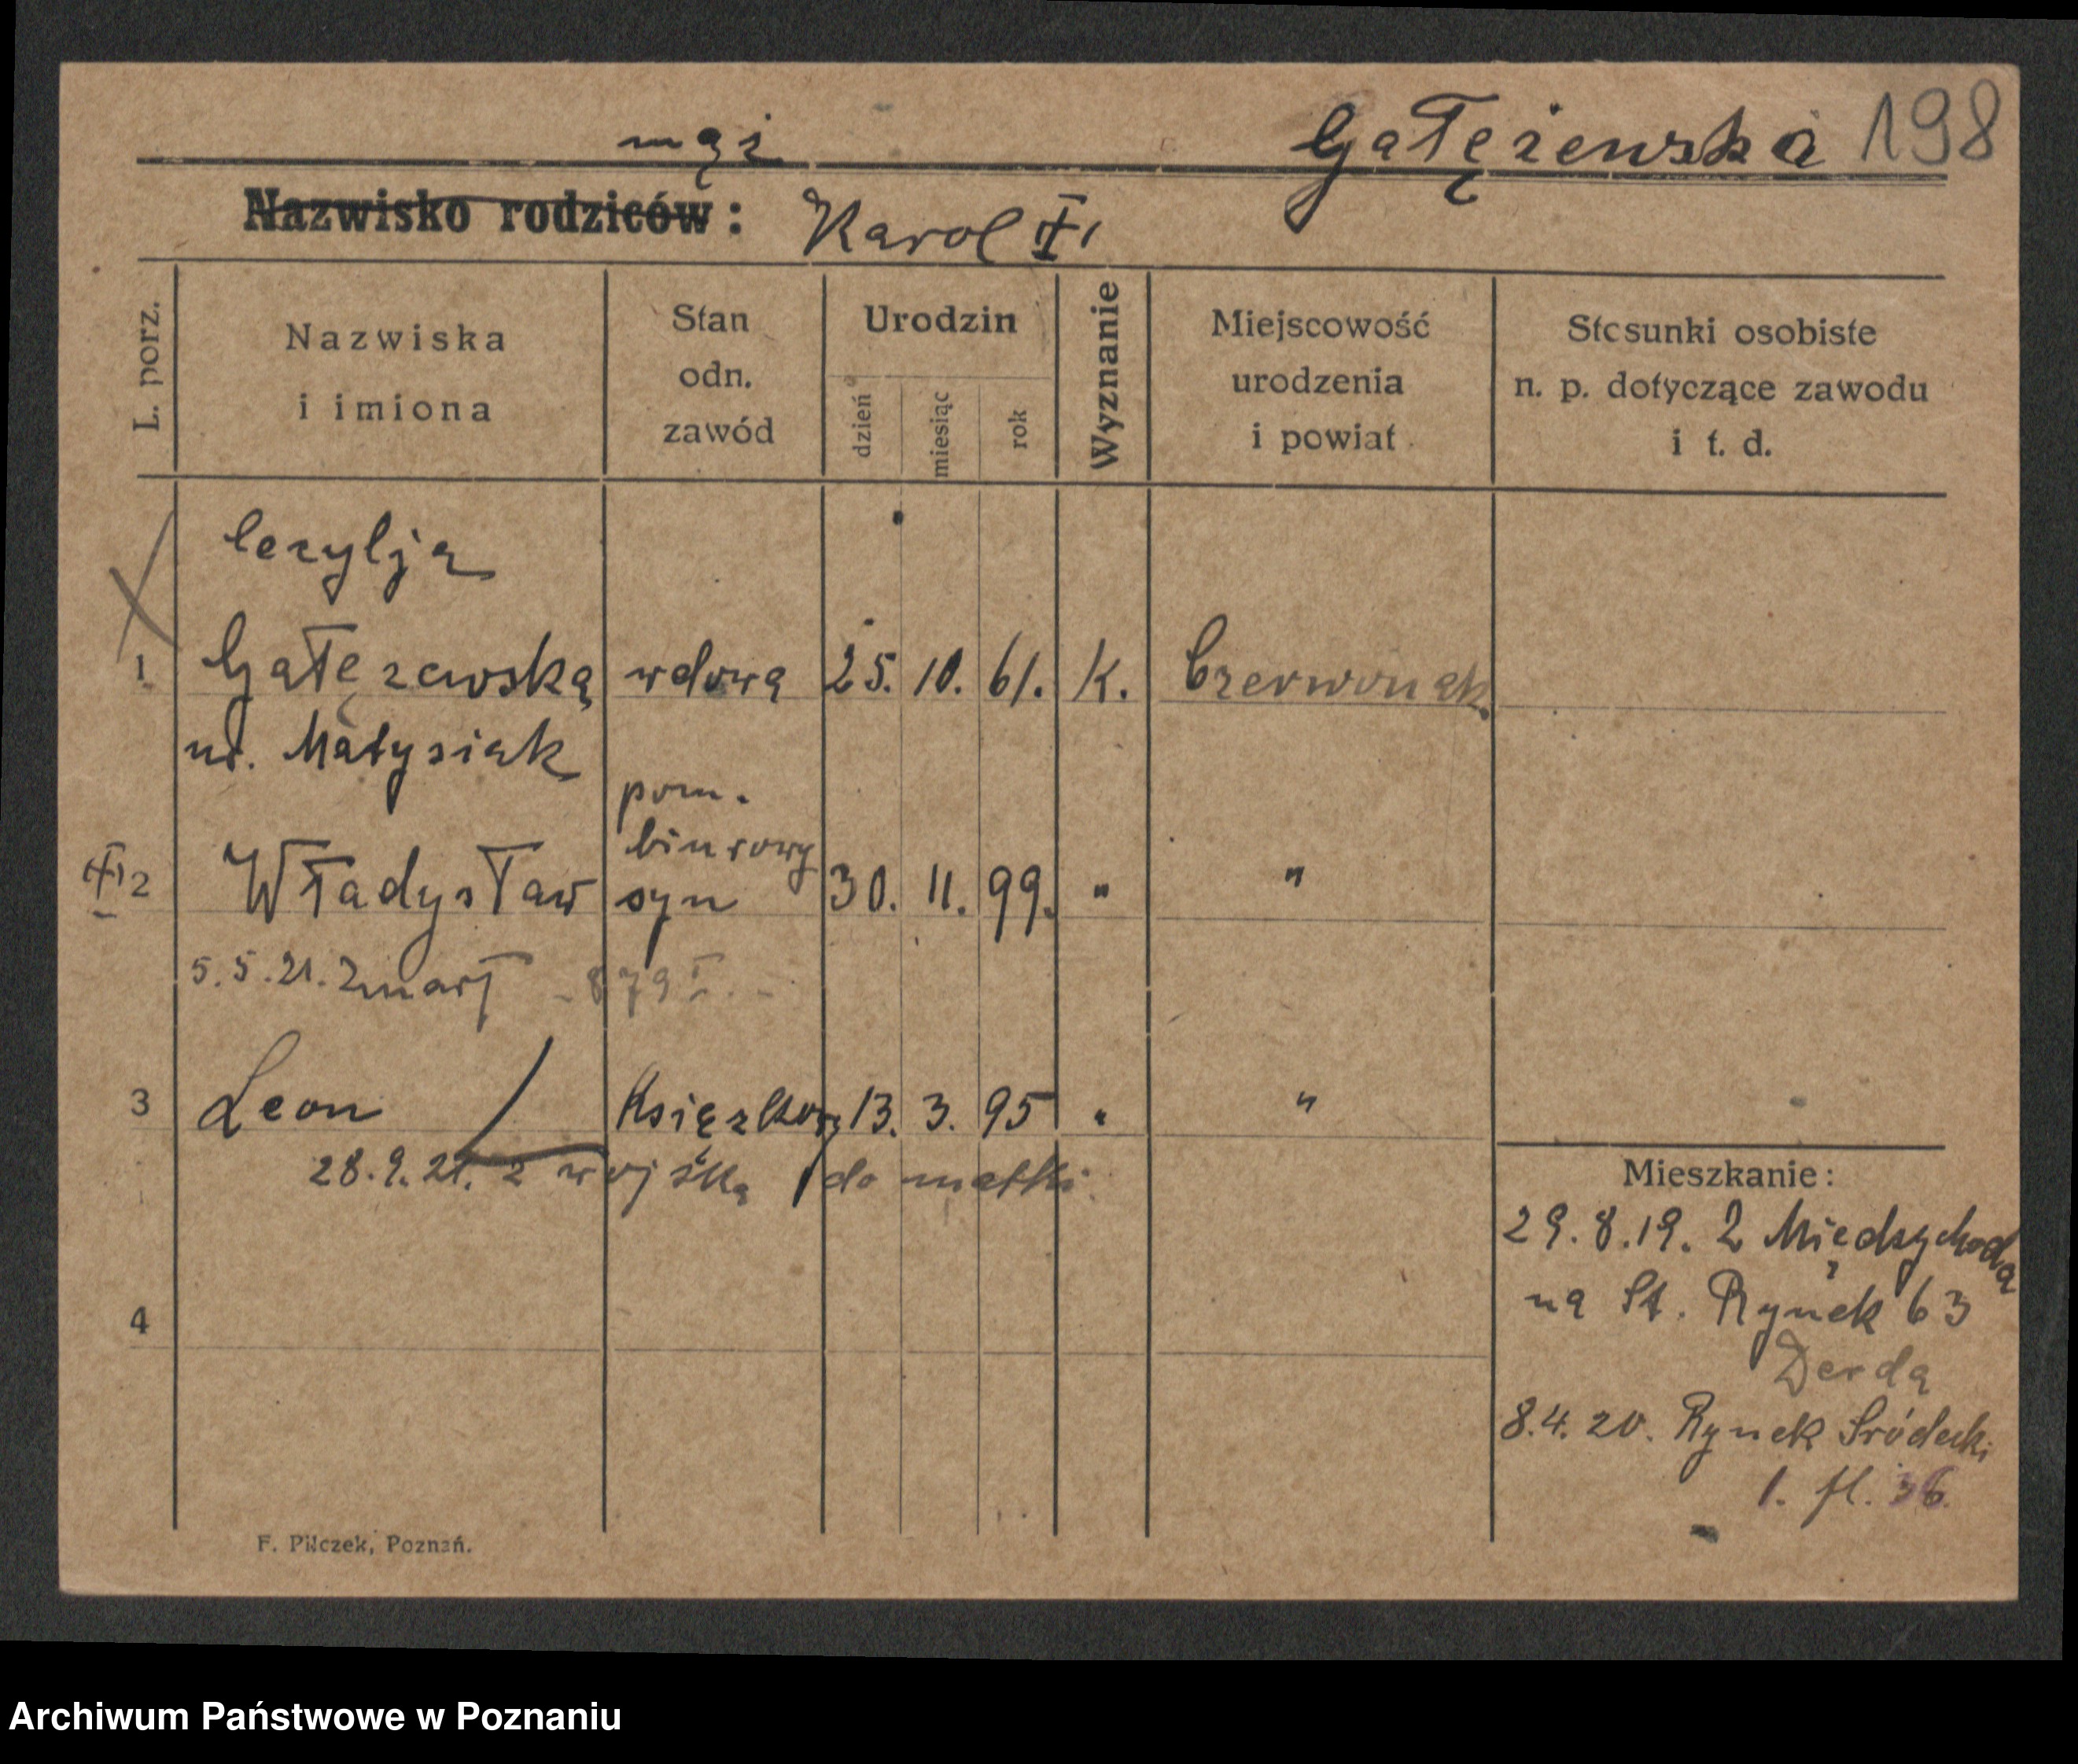 mąż Gałężewska 198
Nazwisko rodziców: Karol
L. porz.
Nazwiska
i imiona
Stan
odn.
zawód
Urodzin
dzień
miesiąc
rok
Wyznanie
Miejscowość
urodzenia
i powiat
Stosunki osobiste
n. p. dotyczące zawodu
i t. d.
Cezylja
1 Gałęzewska wdowa 25. 10. 61. K. Czerwonak
ur. Matysiak
pom.
biurowy
2 Władysław syn 30. 11. 99. " "
5.5.21. Zmarł - 879 I. -
3 Leon Księgkowy 13. 3. 95 " "
28.9.21. z wojska do matki.
4
Mieszkanie:
29.8.19. Z Międzychoda
na St. Rynek 63
Derda
8.4.20. Rynek Śródecki
1. fl. 36.
F. Pilczek, Poznań.
Archiwum Państwowe w Poznaniu